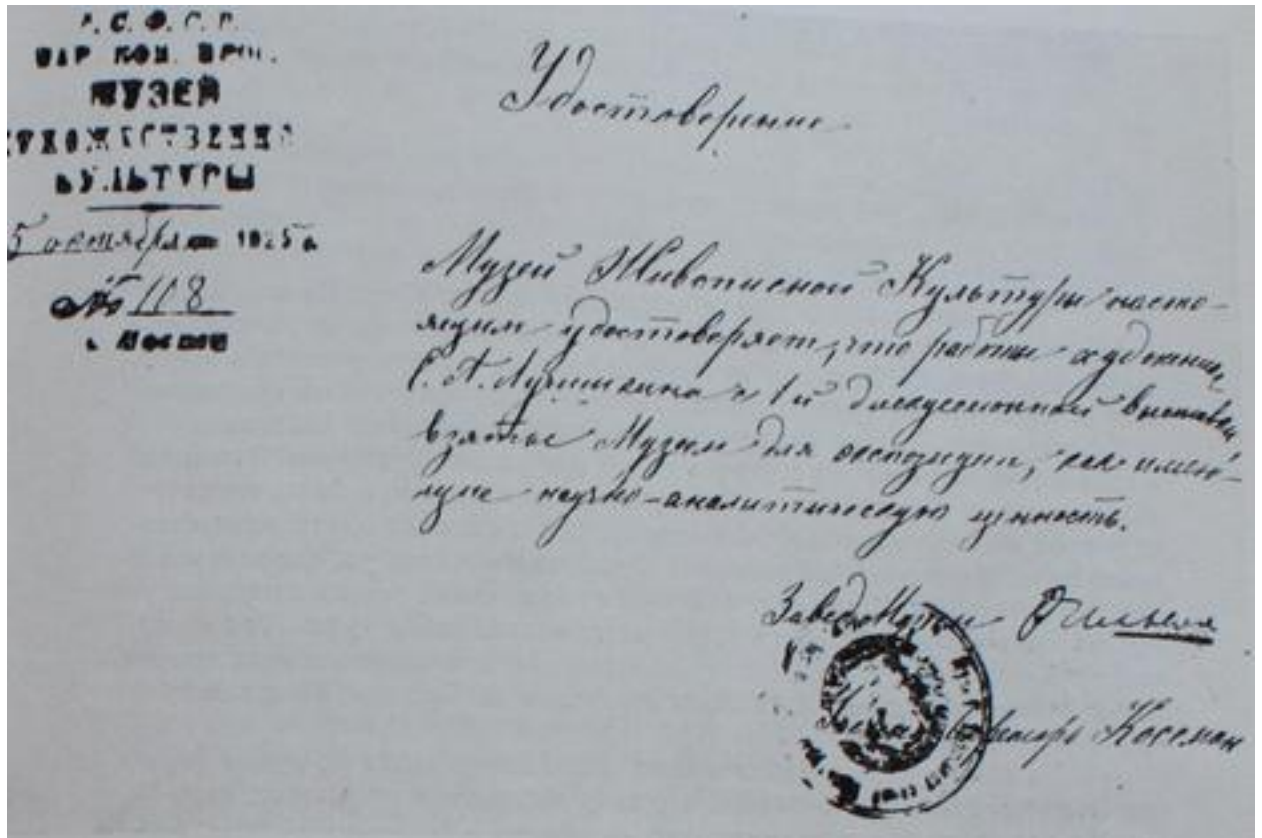 Р. С. Ф. С. Р.
НАР. КОМ. ПРОС.
МУЗЕЙ
ХУДОЖЕСТВЕННО
КУЛЬТУРЫ
5 октября 1925 г.
№ 118
г. Москва
Удостоверение
Музей Живописной Культуры насто-
ящим удостоверяет, что работы художника
С. А. Лучишкина с 1й дискуссионной выставки
взятые Музеем для экспозиции, как имею-
щие научно-аналитическую ценность.
Завед. Музеем
Секретарь